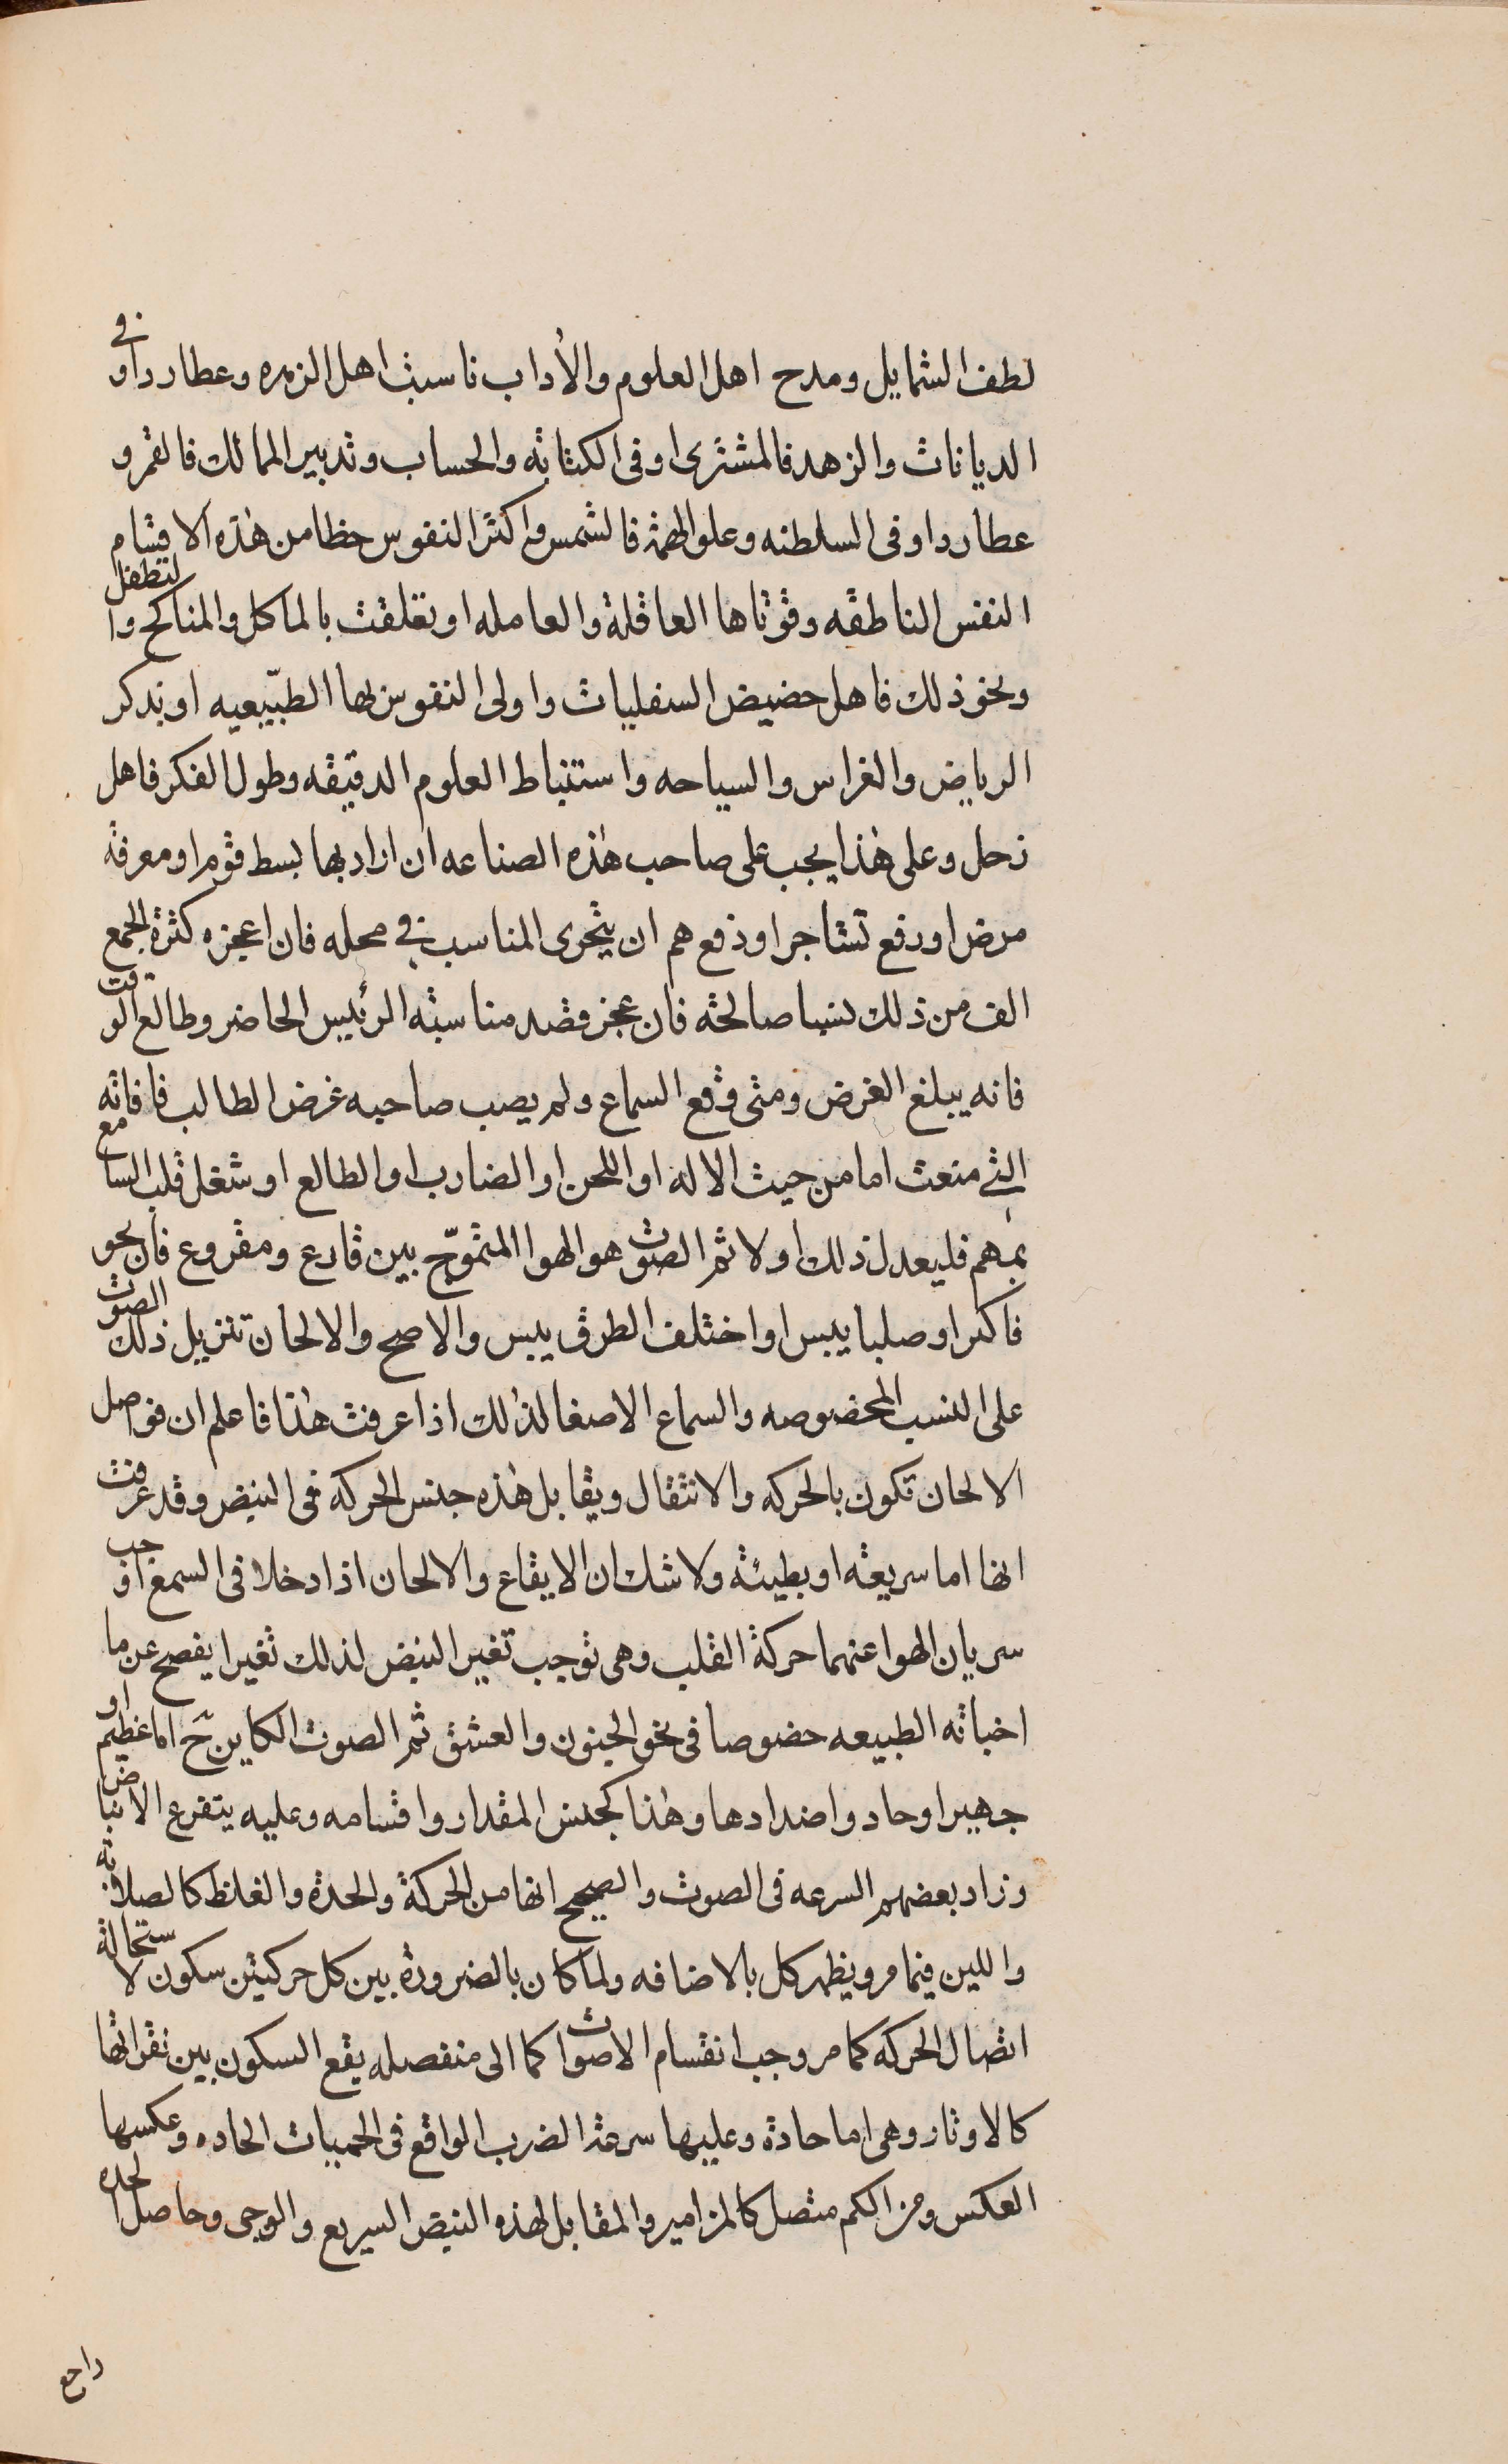 لطف الشمايل ومدح اهل العلوم والأداب ناسبت اهل الزهره وعطارد او في
الديانات والزهد فالمشترى او فى الكتابة والحساب وتدبير الممالك فالقمر و
عطارد او فى السلطنه وعلو الهمة فالشمس واكثر النفوس حظا من هذه الاقسام
النفس الناطقه وقوتاها العاقلة والعامله او تعلقت بالماكل والمناكح والتطفل
ونحو ذلك فاهل حضيض السفليات واولى النفوس بها الطبيعيه او بذكر
الرياض والغراس والسياحه واستنباط العلوم الدقيقه وطول الفكر فاهل
زحل وعلى هذا يجب على صاحب هذه الصناعه ان اراد بها بسط قوم او معرفة
مرض او رفع تشاجر او دفع هم ان يتحرى المناسب في محله فان اعجزه كثرة الجمع
الف من ذلك نسبا صالحة فان عجز قصد مناسبة الرئيس الحاضر وطالع الوقت
فانه يبلغ الغرض ومتى وقع السماع ولم يصب صاحبه غرض الطالب فافاته
التي منعت اما من حيث الاله او اللحن او الضارب او الطالع او شغل قلب السامع
بمهم فليعدل ذلك اولا ثم الصوت هو الهوا المتموّج بين قارع ومقروع فان بحو
فاكدا وصلبا يبس او اختلف الطرف يبس والاصح والالحان تنزيل ذلك الصوت
على النسب المخصوصه والسماع الاصغا لذلك اذا عرفت هذا فاعلم ان فواصل
الالحان تكون بالحركه والانتقال ويقابل هذه جنس الحركه فى النبض وقد عرفت
انها اما سريعة او بطيئة ولا شك ان الايقاع والالحان اذا دخلا فى السمع اوجب
سريان الهوا عنهما حركة القلب وهى توجب تغير النبض لذلك تغيرا يفصح عن ما
اخباته الطبيعه خصوصا فى نحو الجنون والعشق ثم الصوت الكاين ح اما عظيم او
جهير او حاد واضدادها وهذا كجنس المقدار واقسامه وعليه يتفرع الانباض
وزاد بعضهم السرعه فى الصوت والصحيح انها من الحركة والحدة والغلظ كالصلابة
واللين فيما مر ويظهر كل بالاضافه ولما كان بالضرورة بين كل حركتين سكون لاستحالة
اتصال الحركه كما مر وجب انقسام الاصوات كما الى منفصله يقع السكون بين نقراتها
كالاوتار وهى اما حادة وعليها سرعة الضرب الواقع فى الحميات الحاده وعكسها
العكس ومن الكم متصل كالمزامير والمقابل لهذه النبض السريع والموجى وحاصل الحده
راجع